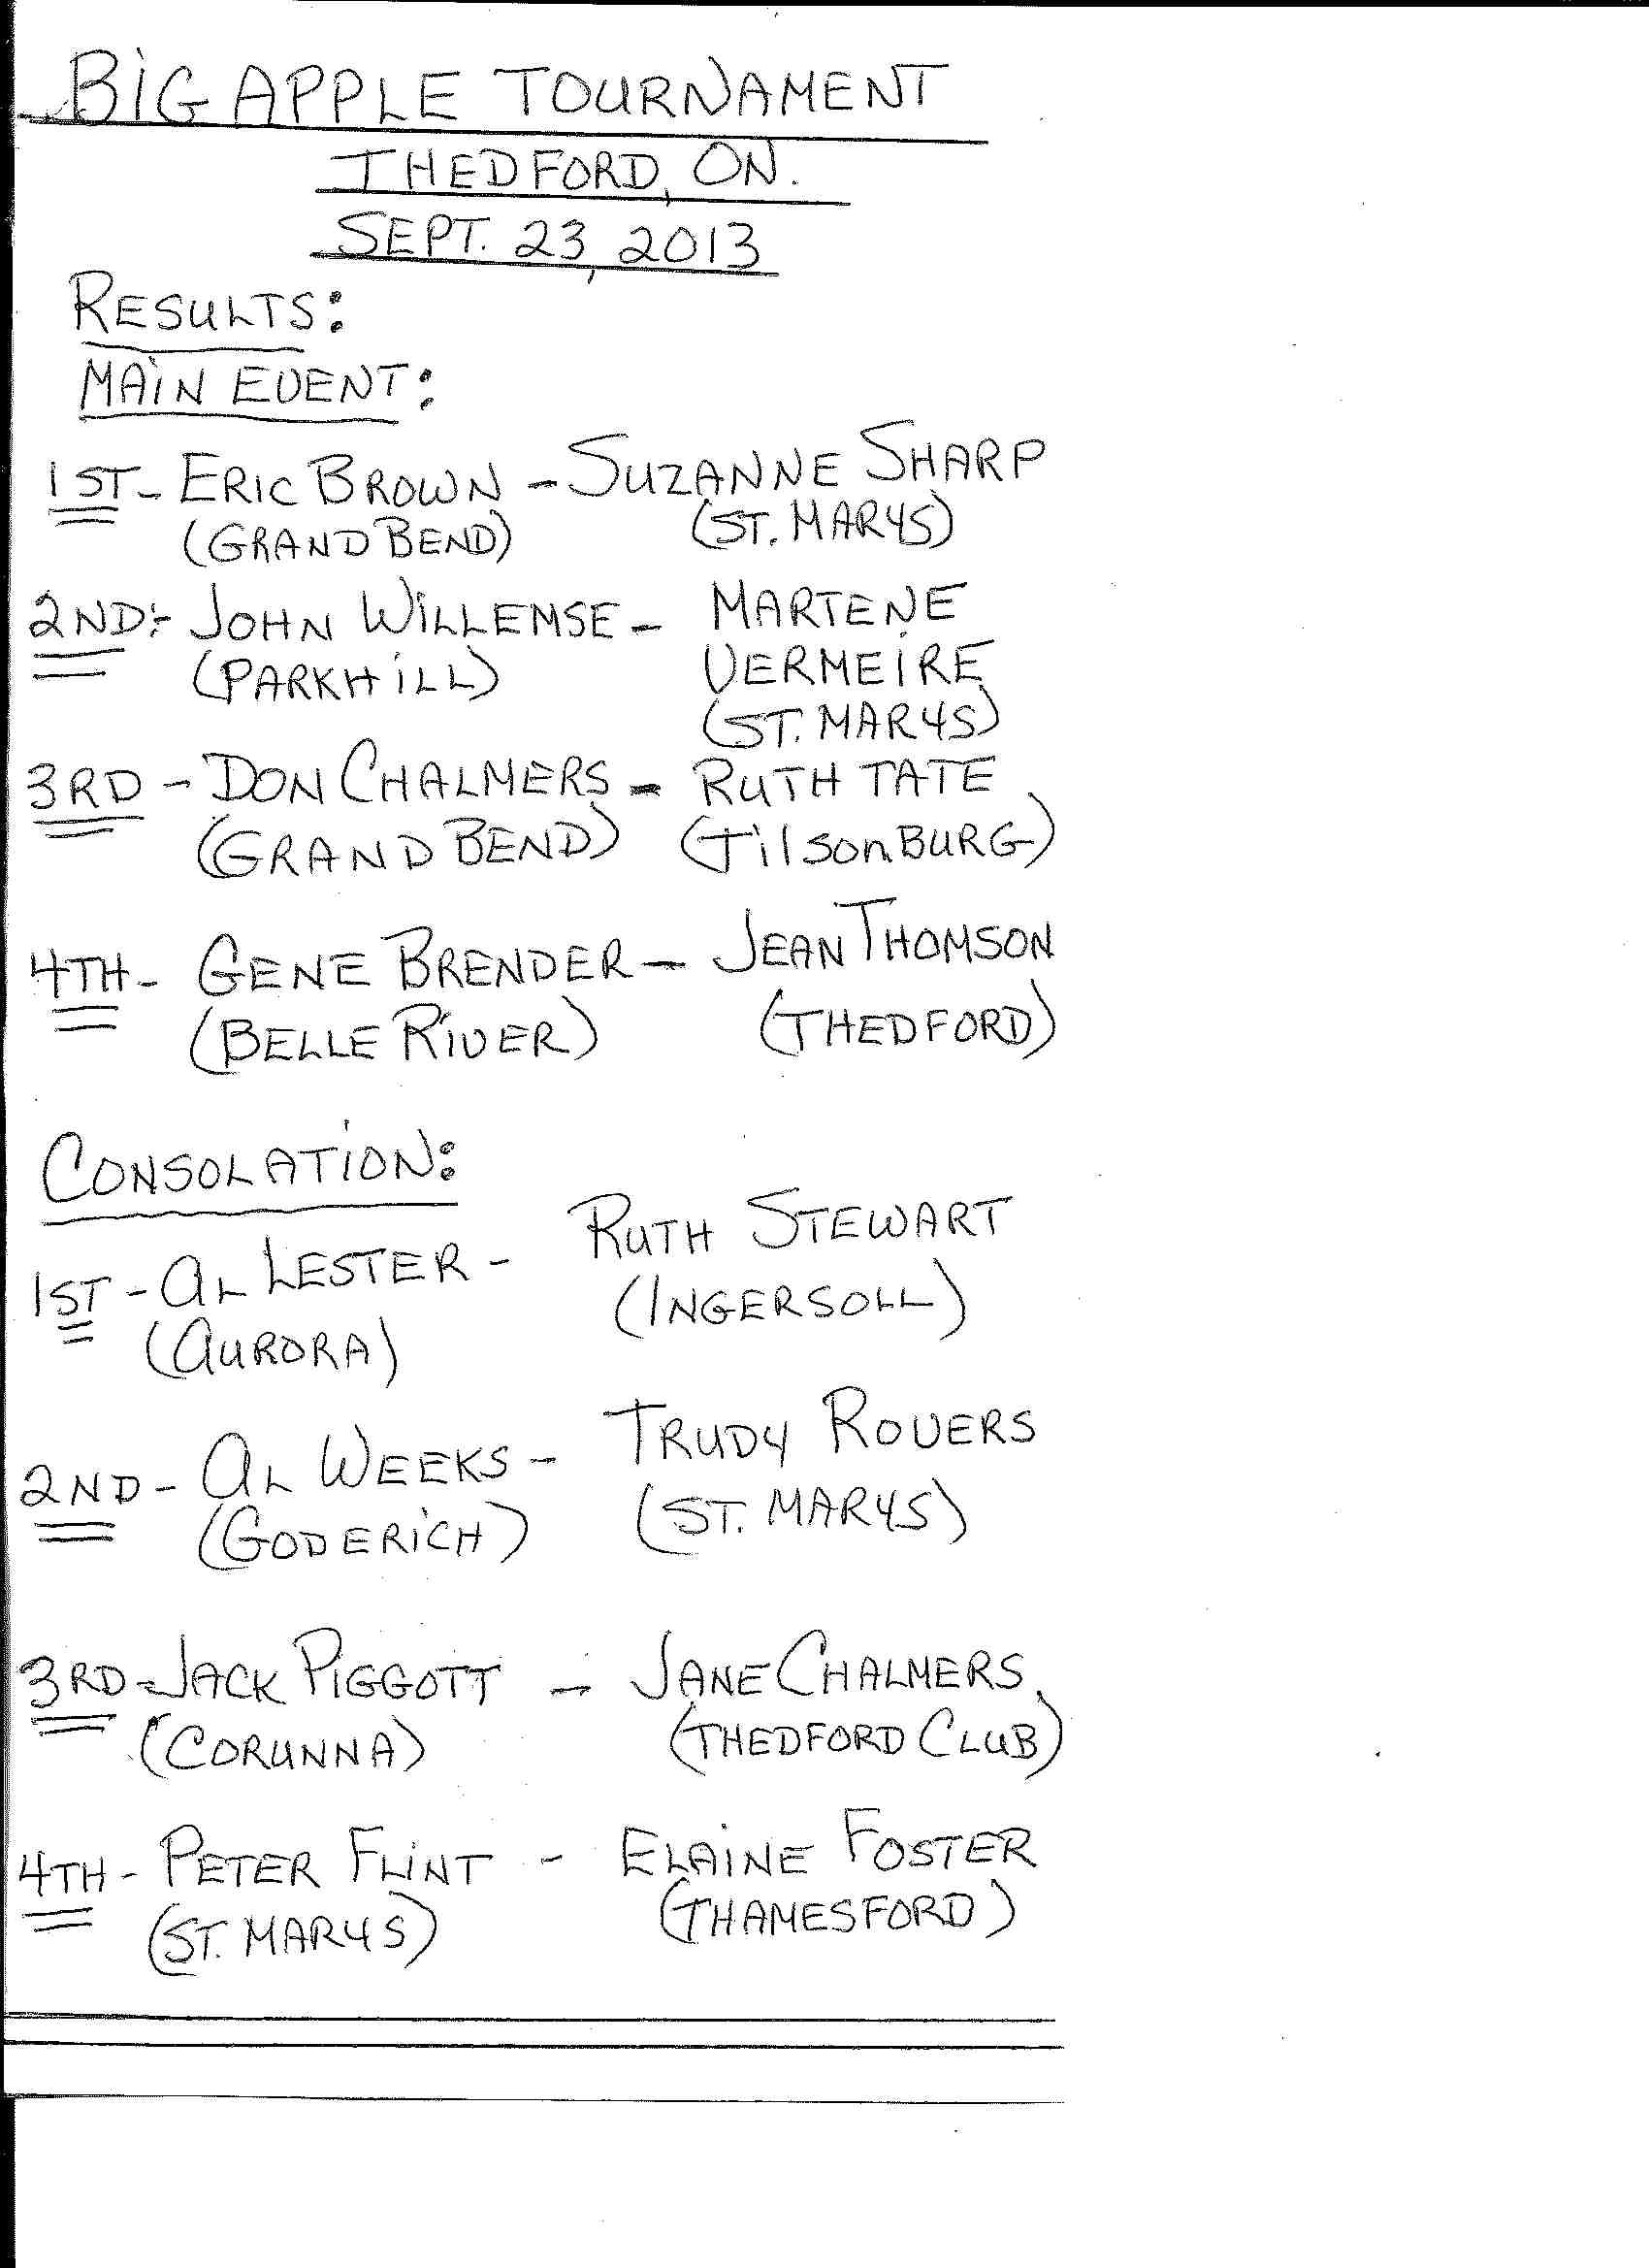 BIG APPLE TOURNAMENT
THEDFORD, ON.
SEPT. 23, 2013
RESULTS:
MAIN EVENT:
1ST - ERIC BROWN - SUZANNE SHARP
(GRAND BEND) (ST. MARYS)
2ND:- JOHN WILLEMSE - MARTENE
(PARKHILL) VERMEIRE
(ST. MARYS)
3RD - DON CHALMERS - RUTH TATE
(GRAND BEND) (TilsonBURG)
4TH - GENE BRENDER - JEAN THOMSON
(BELLE RIVER) (THEDFORD)
CONSOLATION:
1ST - AL LESTER - RUTH STEWART
(AURORA) (INGERSOLL)
2ND - AL WEEKS - TRUDY ROVERS
(GODERICH) (ST. MARYS)
3RD - JACK PIGGOTT - JANE CHALMERS
(CORUNNA) (THEDFORD CLUB)
4TH - PETER FLINT - ELAINE FOSTER
(ST. MARYS) (THAMESFORD)